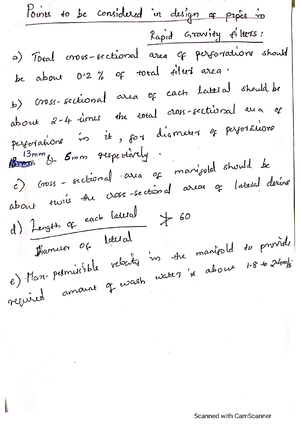 Points to be considered in design of pipes in
Rapid Gravity filters:
a) Total cross-sectional area of perforations should
be about 0.2% of total filter area.
b) Cross-sectional area of each lateral should be
about 2-4 times the total cross-sectional area of
perforations in it, for diameter of perforations
13mm & 6mm respectively.
c) Cross-sectional area of manifold should be
about twice the cross-sectional area of lateral
d) Length of each lateral ≯ 60
Diameter of lateral
e) Max. permissible velocity in the manifold to provide
required amount of wash water is about 1.8 to 2.4m/s
Scanned with CamScanner